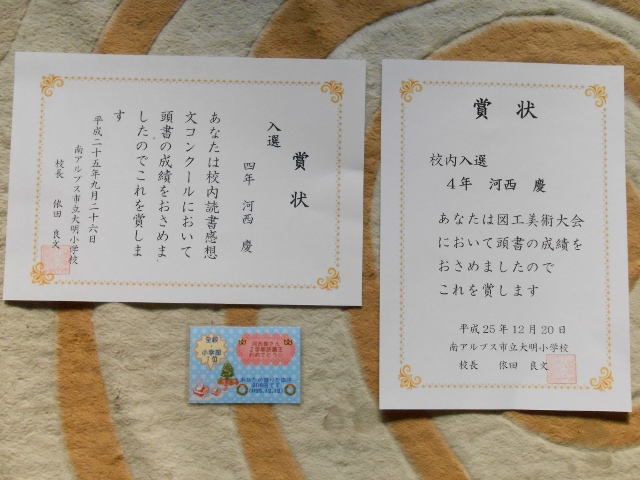 賞状
入選
四年 河西 慶
あなたは校内読書感想
文コンクールにおいて
頭書の成績をおさめま
したのでこれを賞しま
す
平成二十五年九月二十六日
南アルプス市立大明小学校
校長 依田 良文
賞状
校内入選
4年 河西 慶
あなたは図工美術大会
において頭書の成績を
おさめましたので
これを賞します
平成25年12月20日
南アルプス市立大明小学校
校長 依田 良文
河西慶さん
2学期読書王
おめでとう